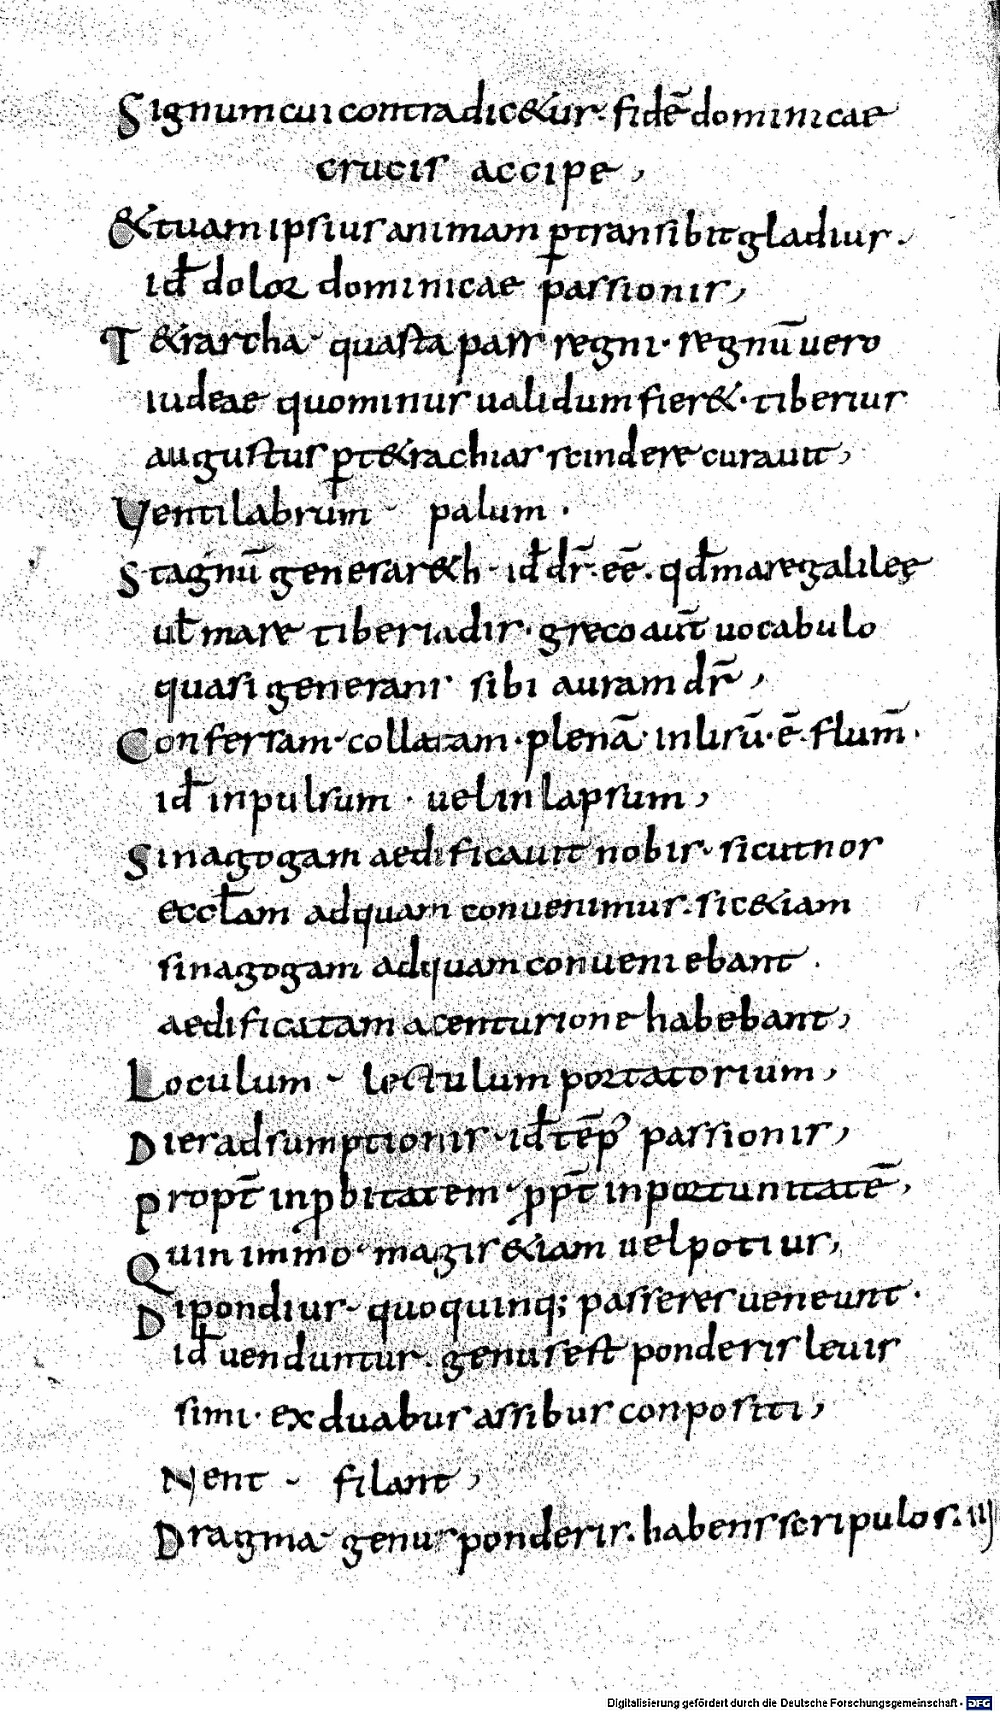 Signum cui contradic&ur· fidē dominicae
crucis accipe,
&tuam ipsius animam ꝑtransibit gladius.
id̄ dolor dominicae passionis,
T&rarcha· quasta pars regni· regnū uero
iudeae quominus ualidum fier&· tiberius
augustus ꝑt&rachias scindere curauit,
Uentilabrum - palum·
Stagnū genesar&h· id̄ dr̄·eē· qd̄ mare galileę
ul̄ mare tiberiadis· greco aut̄ uocabulo
quasi generans sibi auram dr̄,
Confersam· collatam· plenā· inlisū·ē· flum̄·
id̄ inpulsum· uel inlapsum,
Sinagogam aedificauit nobis· sicut nos
eccl̄am ad quam conuenimus· sic &iam
sinagogam ad quam conueniebant·
aedificatam a centurione habebant,
Loculum - lectulum portatorium,
Dies adsumptionis· id̄ tēp̄ passionis,
Propt̄ inꝓbitatem· ꝓpt̄ inportunitatē,
Quin immo· magis &iam uel potius,
Dipondius· quo quinq; passeres ueneunt·
id̄ uenduntur· genus est ponderis leuis
simi· ex duabus assibus conpositi,
Nent - filant,
Dragma genus ponderis· habens scripulos· iij
Digitalisierung gefördert durch die Deutsche Forschungsgemeinschaft - DFG